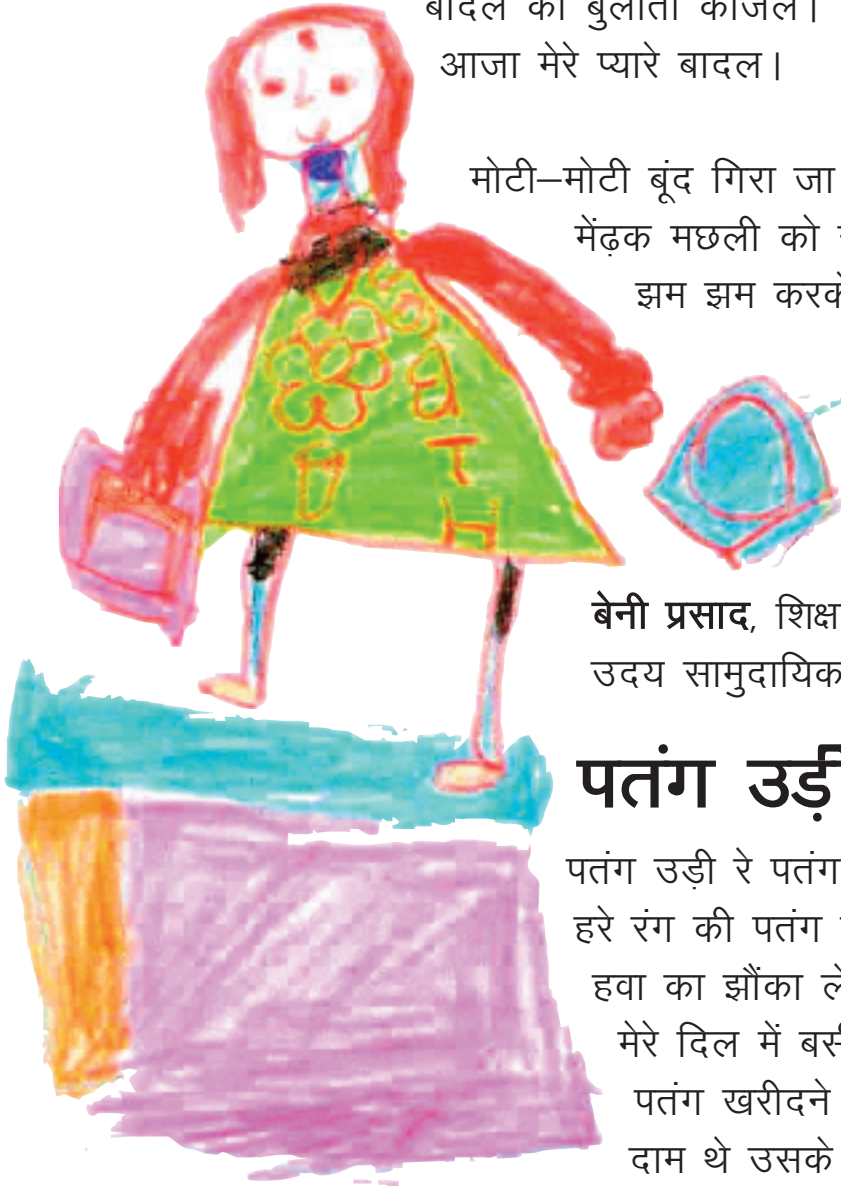 बादल को बुलाता काजल।
आजा मेरे प्यारे बादल।
मोटी–मोटी बूंद गिरा जा
मेंढ़क मछली को
झम झम करके
बेनी प्रसाद, शिक्ष
उदय सामुदायिक
पतंग उड़ी
पतंग उड़ी रे पतंग
हरे रंग की पतंग
हवा का झौंका ले
मेरे दिल में बसी
पतंग खरीदने
दाम थे उसके